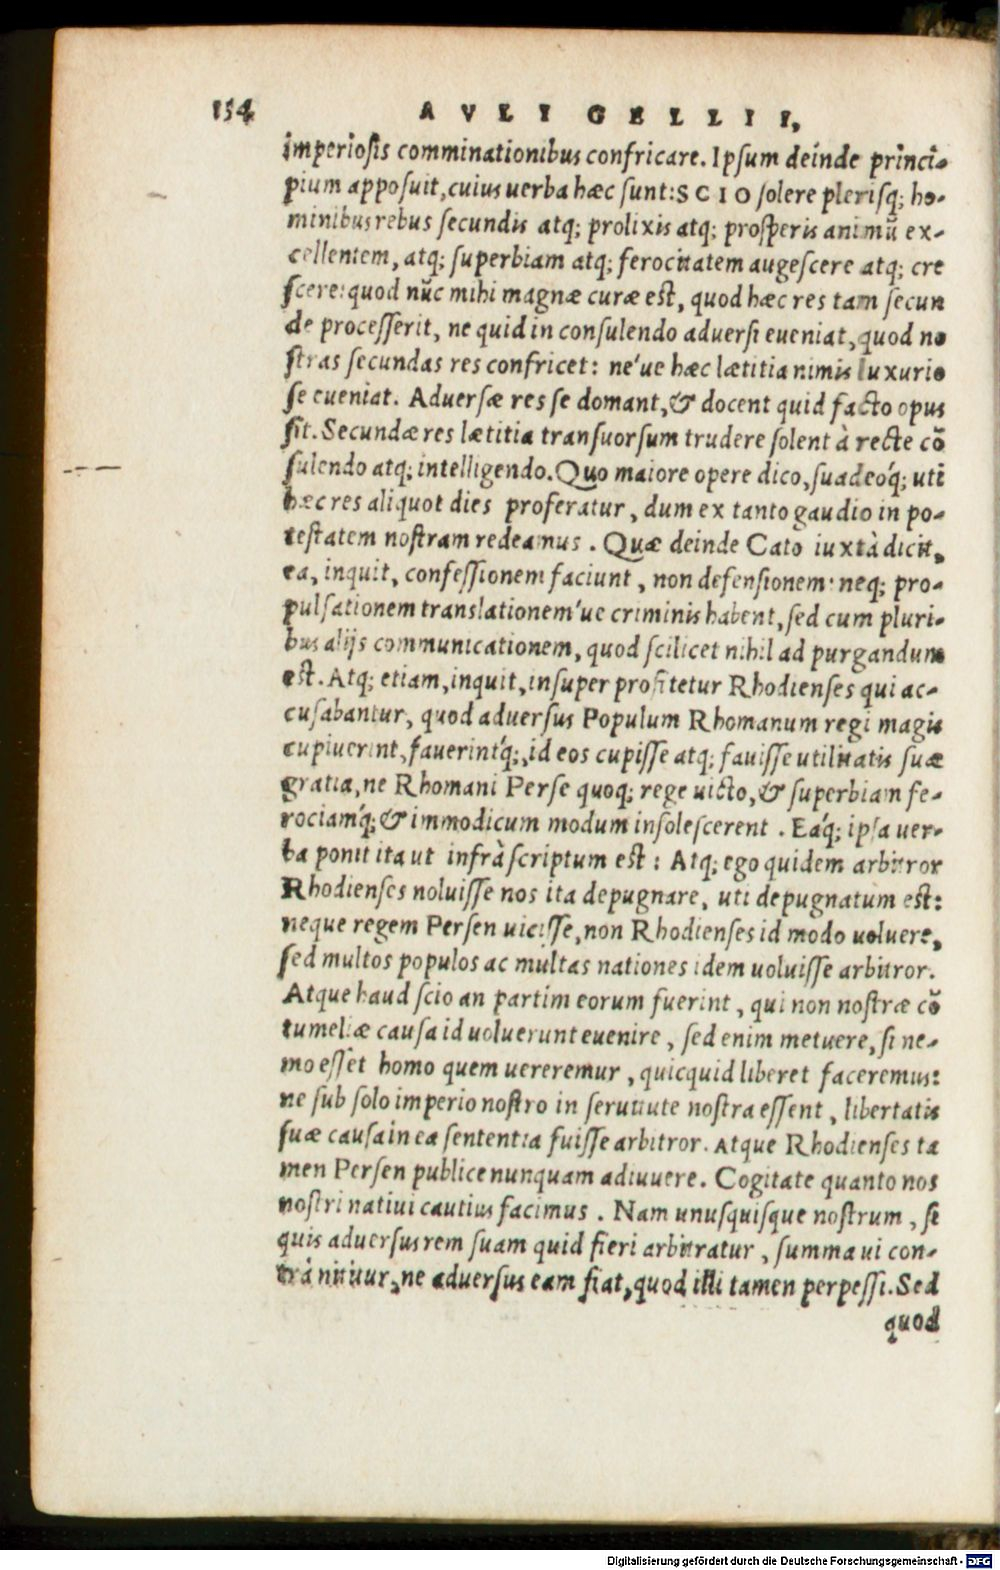 154 AVLI GELLII,
imperiosis comminationibus confricare. Ipsum deinde princi-
pium apposuit, cuius uerba hæc sunt: SCIO solere plerisq; ho-
minibus rebus secundis atq; prolixis atq; prosperis animū ex-
cellentem, atq; superbiam atq; ferocitatem augescere atq; cre
scere: quod nūc mihi magnæ curæ est, quod hæc res tam secun
de processerit, ne quid in consulendo aduersi eueniat, quod no
stras secundas res confricet: ne´ue hæc lætitia nimis luxurio
se eueniat. Aduersæ res se domant, & docent quid facto opus
sit. Secundæ res lætitia transuorsum trudere solent à recte cō
sulendo atq; intelligendo. Quo maiore opere dico, suadeóq; uti
hæc res aliquot dies proferatur, dum ex tanto gaudio in po-
testatem nostram redeamus. Quæ deinde Cato iuxtà dicit,
ea, inquit, confessionem faciunt, non defensionem: neq; pro-
pulsationem translationem´ue criminis habent, sed cum pluri-
bus alijs communicationem, quod scilicet nihil ad purgandum
est. Atq; etiam, inquit, insuper profitetur Rhodienses qui ac-
cusabantur, quod aduersus Populum Rhomanum regi magis
cupiuerint, fauerintq́;, id eos cupisse atq; fauisse utilitatis suæ
gratia, ne Rhomani Perse quoq; rege uicto, & superbiam fe-
rociamq́; & immodicum modum insolescerent. Eaq́; ipsa uer-
ba ponit ita ut infrà scriptum est: Atq; ego quidem arbitror
Rhodienses noluisse nos ita depugnare, uti depugnatum est:
neque regem Persen uicisse, non Rhodienses id modo uoluere,
sed multos populos ac multas nationes idem uoluisse arbitror.
Atque haud scio an partim eorum fuerint, qui non nostræ cō
tumeliæ causa id uoluerunt euenire, sed enim metuere, si ne-
mo esset homo quem uereremur, quicquid liberet faceremus:
ne sub solo imperio nostro in seruitute nostra essent, libertatis
suæ causa in ea sententia fuisse arbitror. Atque Rhodienses ta
men Persen publice nunquam adiuuere. Cogitate quanto nos
nostri natiui cautius facimus. Nam unusquisque nostrum, si
quis aduersus rem suam quid fieri arbitratur, summa ui con-
trà nititur, ne aduersus eam fiat, quod illi tamen perpessi. Sed
quod
Digitalisierung gefördert durch die Deutsche Forschungsgemeinschaft - DFG